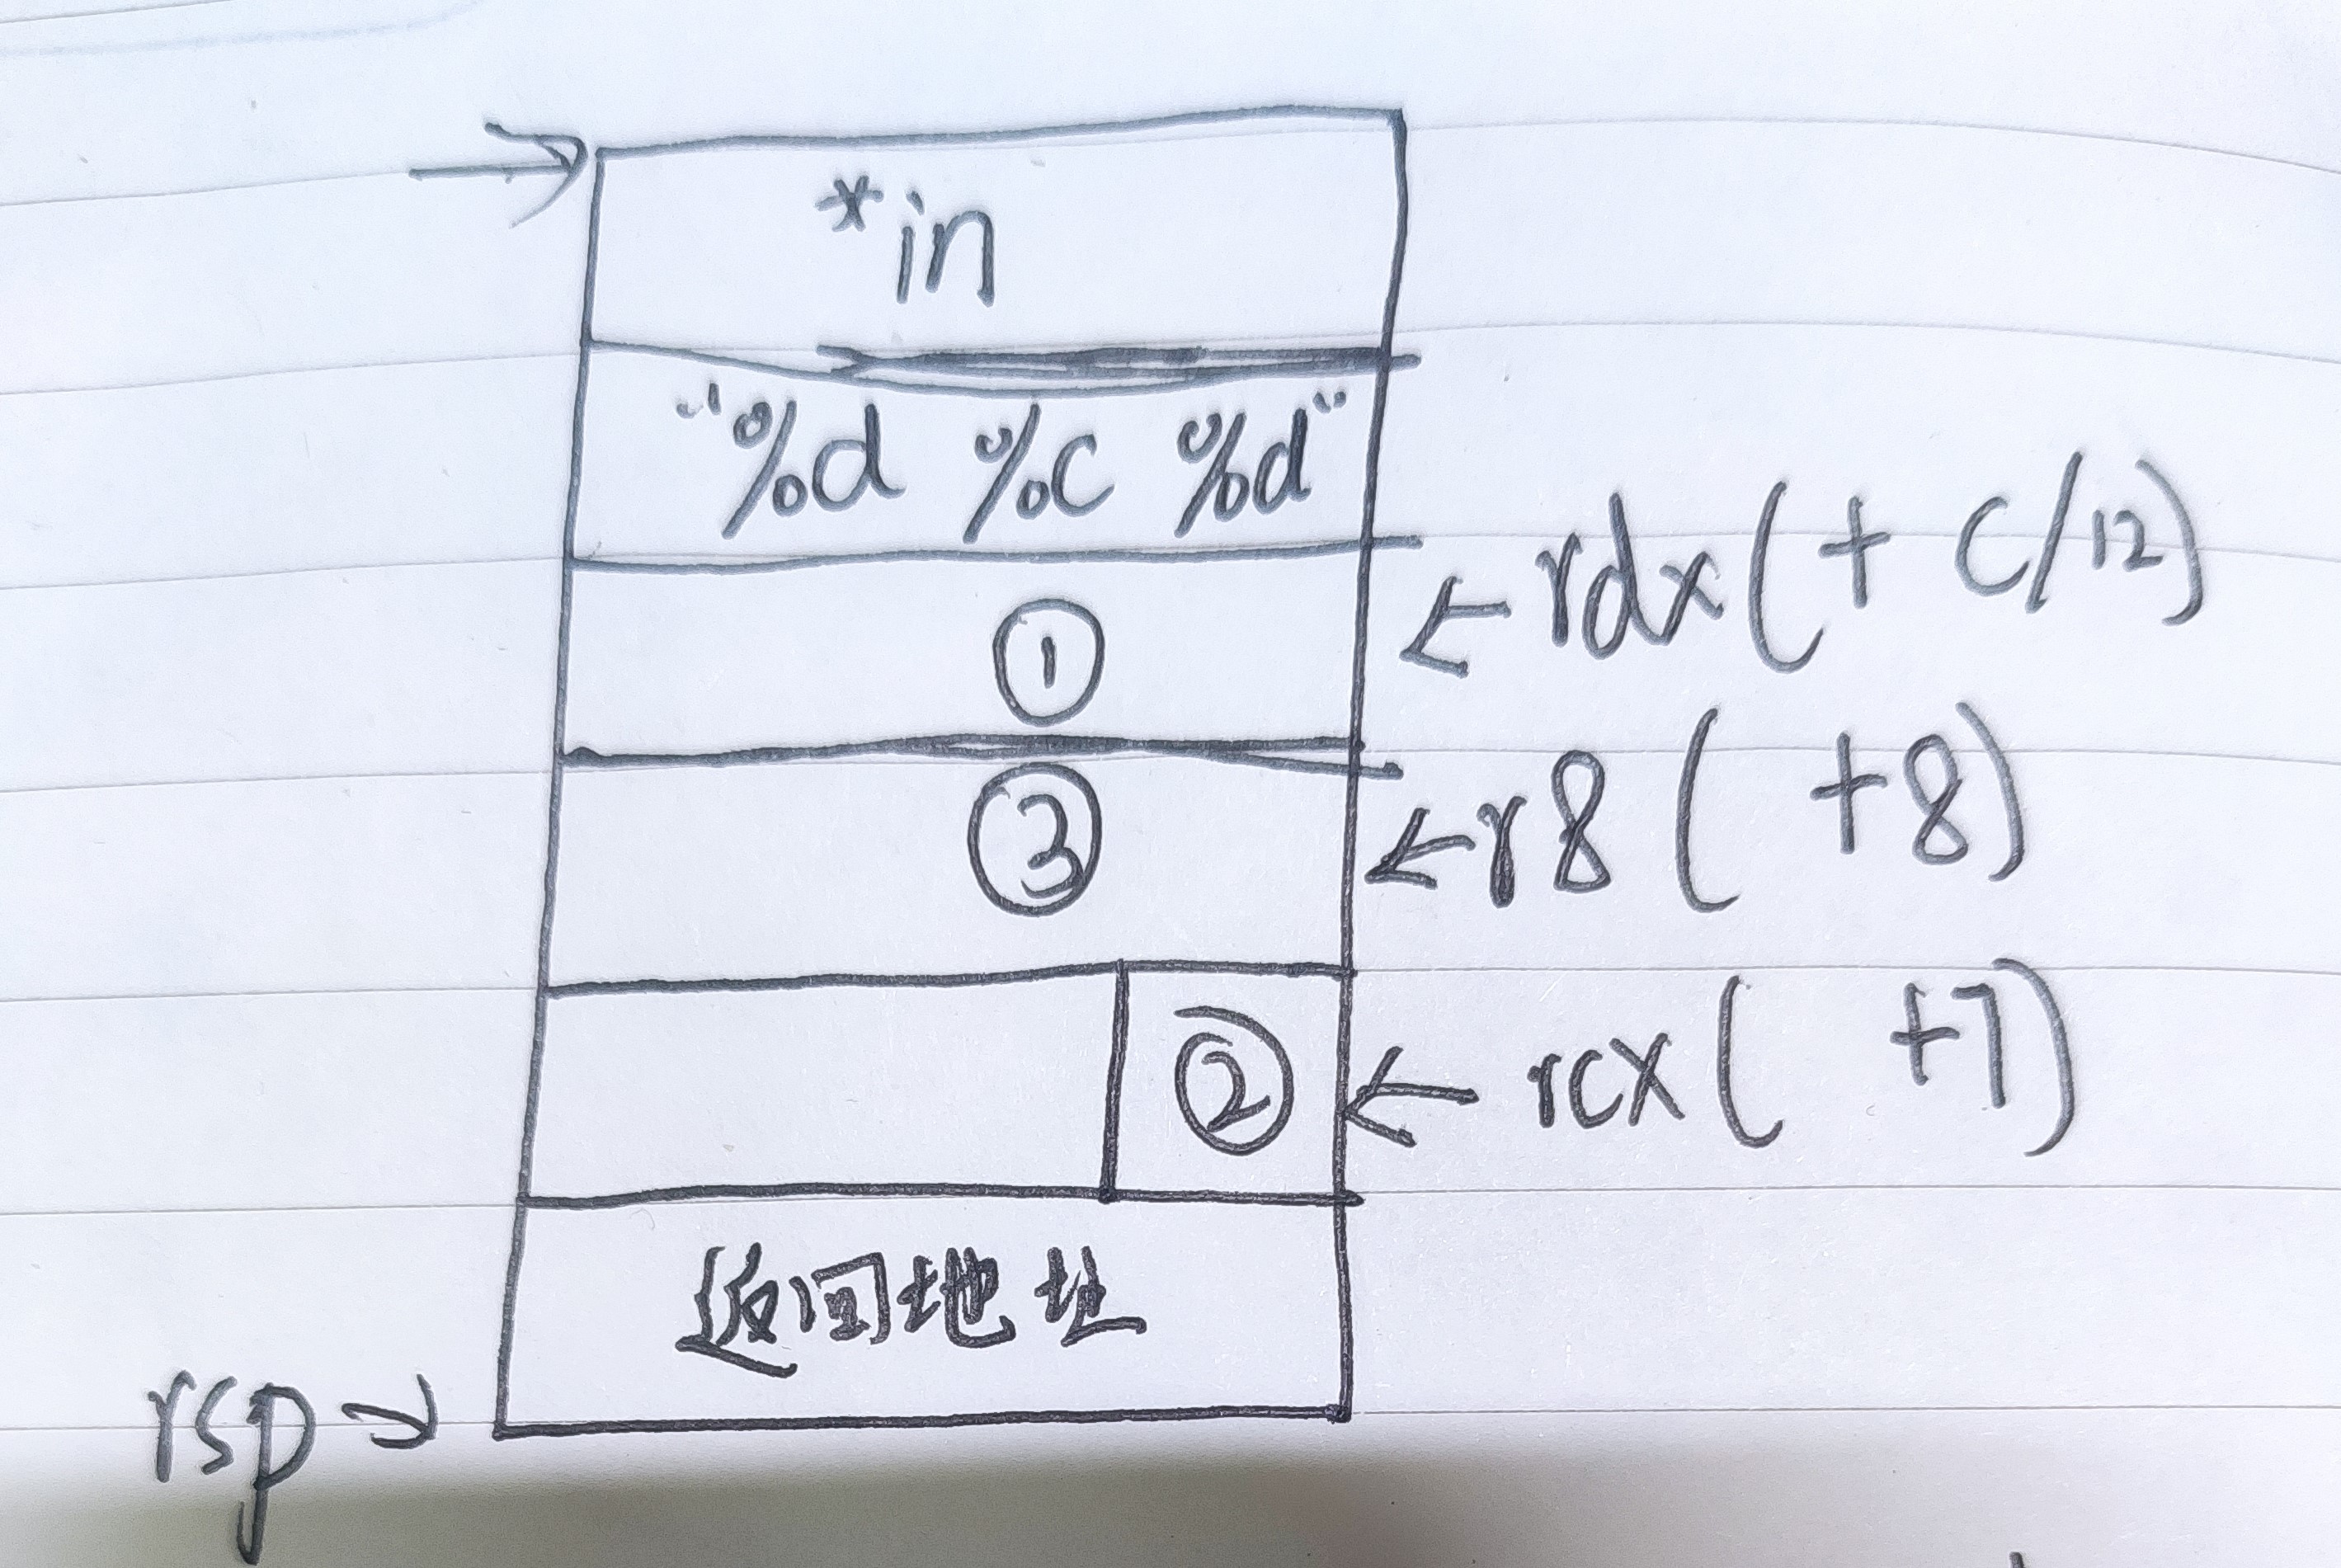 *in
"%d %c %d"
① ←rdx(+c/12)
③ ←r8(+8)
② ←rcx(+7)
返回地址
rsp→